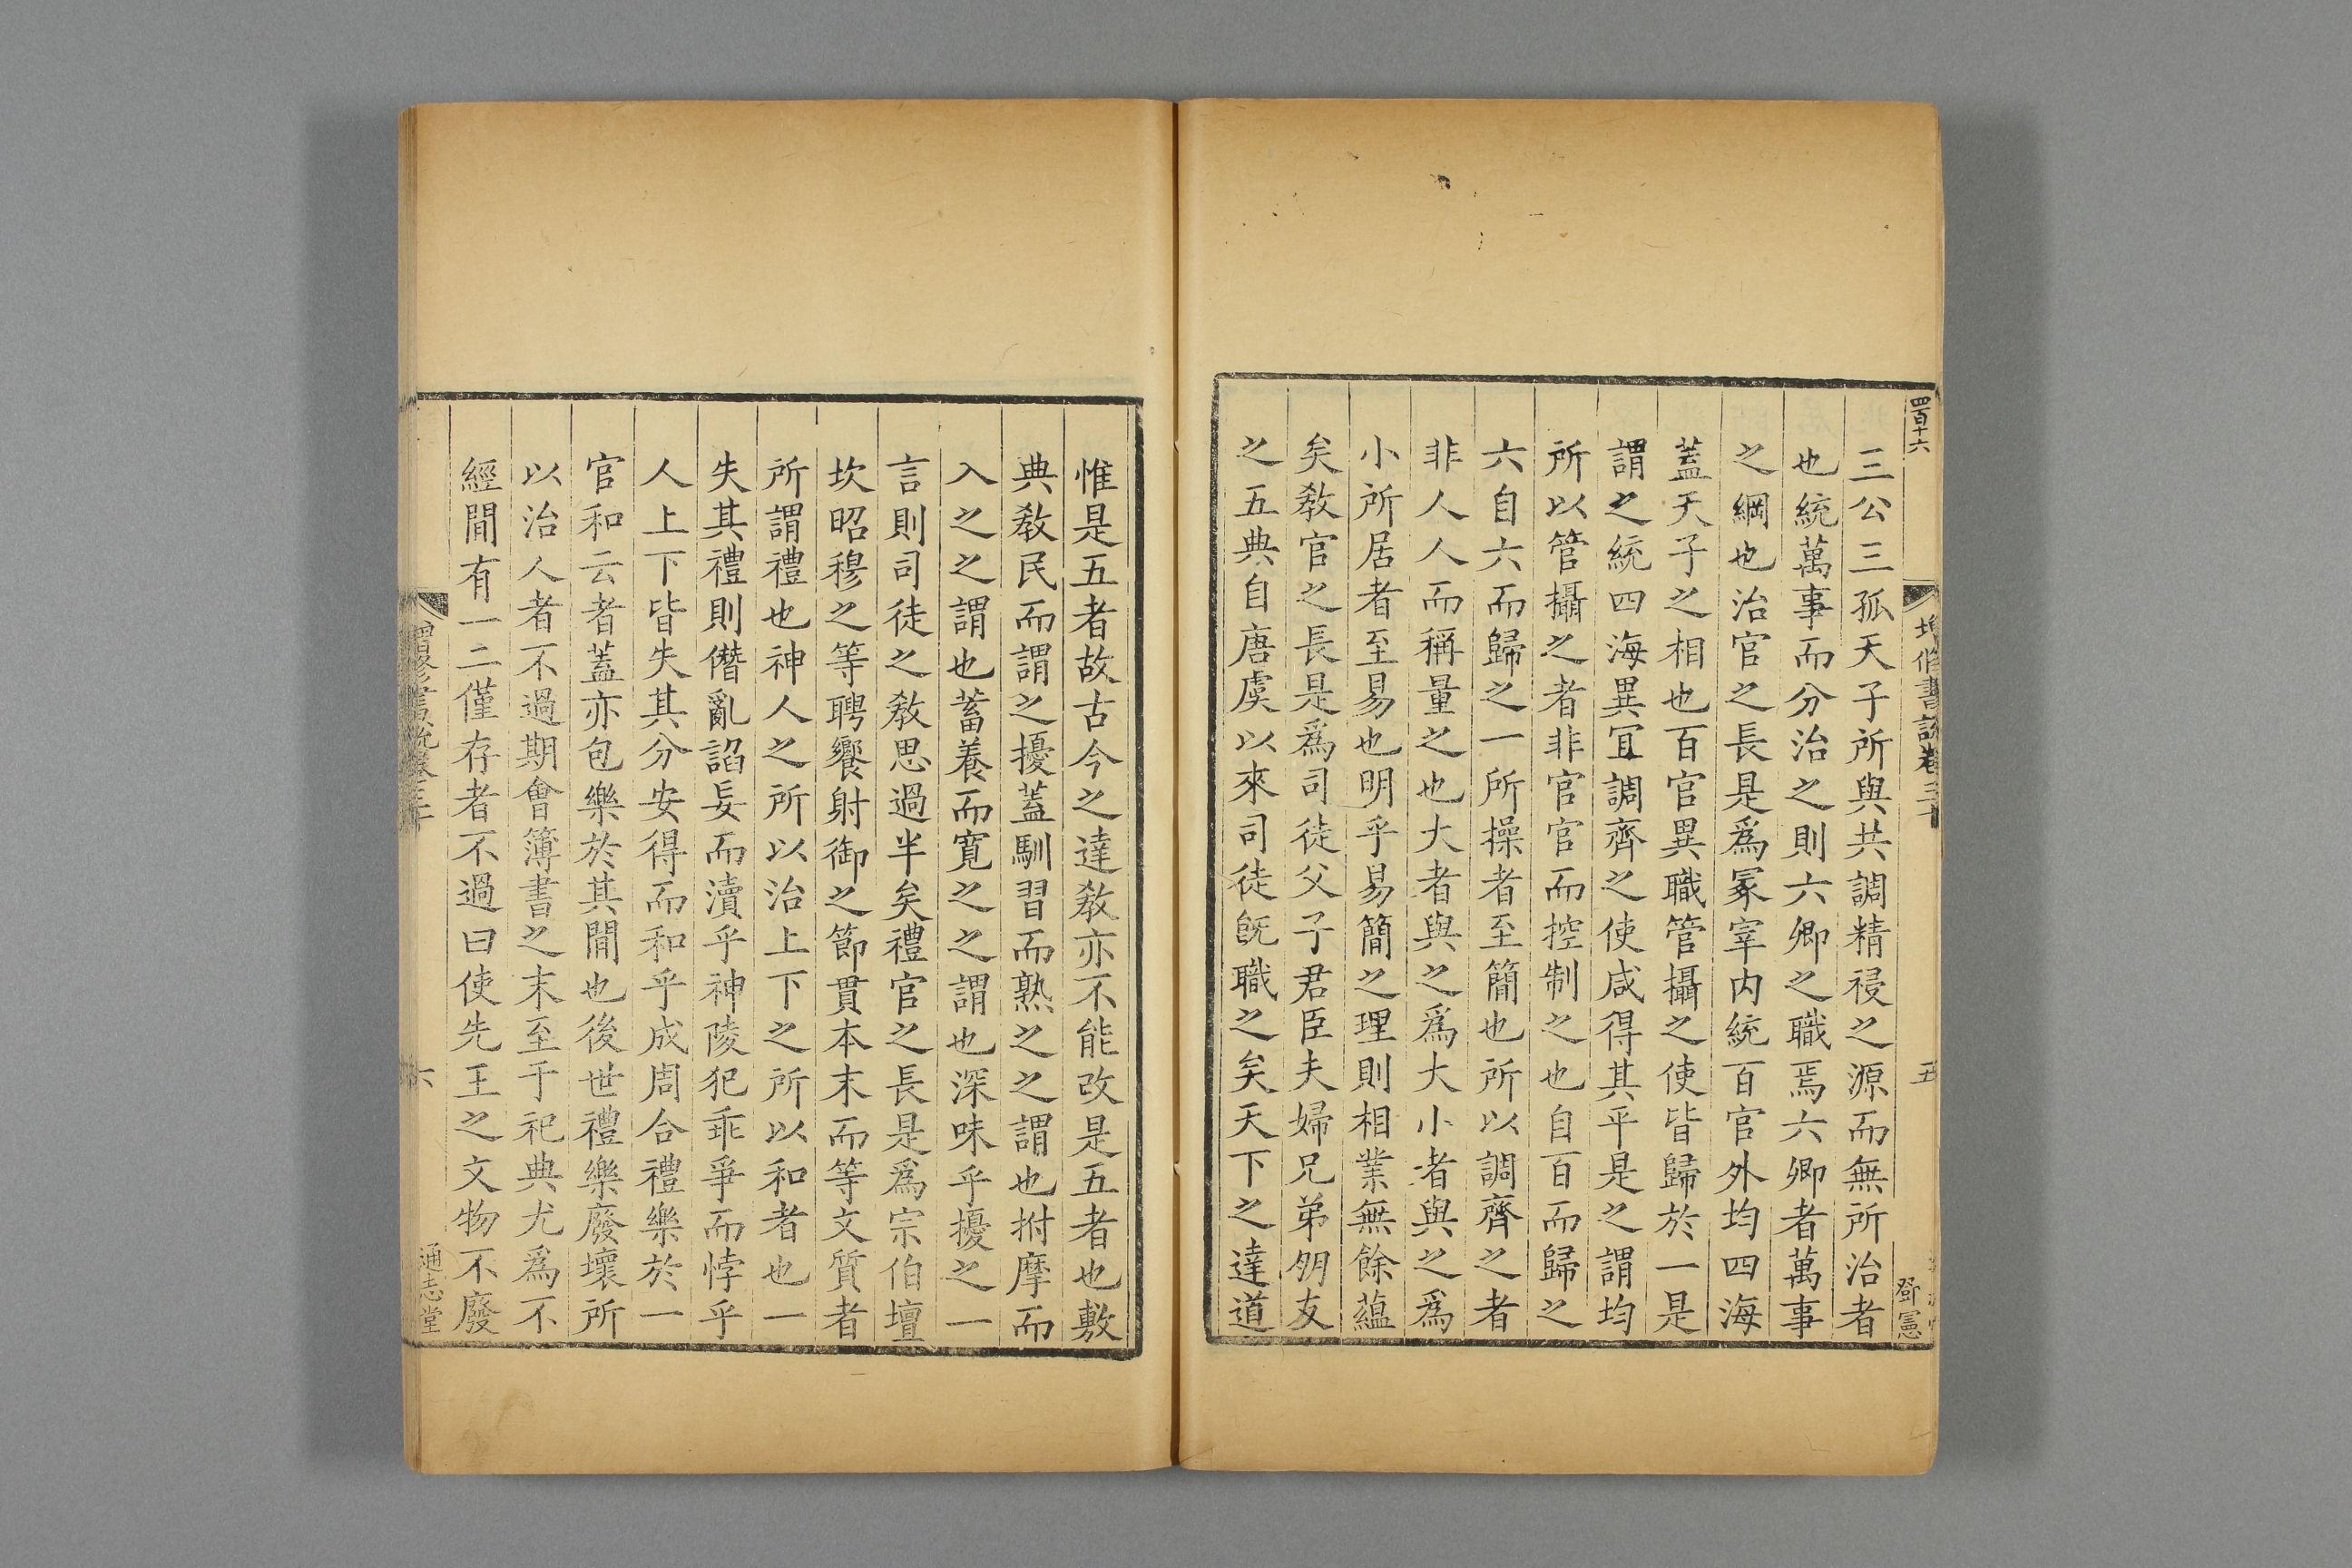 四百十六
增修書說卷三十
五
鄧憲
三公三孤天子所與共調精祲之源而無所治者
也統萬事而分治之則六卿之職焉六卿者萬事
之綱也治官之長是爲冢宰内統百官外均四海
蓋天子之相也百官異職管攝之使皆歸於一是
謂之統四海異冝調齊之使咸得其平是之謂均
所以管攝之者非官官而控制之也自百而歸之
六自六而歸之一所操者至簡也所以調齊之者
非人人而稱量之也大者與之爲大小者與之爲
小所居者至易也明乎易簡之理則相業無餘蘊
矣敎官之長是爲司徒父子君臣夫婦兄弟朋友
之五典自唐虞以來司徒旣職之矣天下之達道
惟是五者故古今之達敎亦不能改是五者也敷
典敎民而謂之擾蓋馴習而熟之之謂也拊摩而
入之之謂也蓄養而寛之之謂也深味乎擾之一
言則司徒之敎思過半矣禮官之長是爲宗伯壇
坎昭穆之等聘饗射御之節貫本末而等文質者
所謂禮也神人之所以治上下之所以和者也一
失其禮則僭亂諂妄而瀆乎神陵犯乖爭而悖乎
人上下皆失其分安得而和乎成周合禮樂於一
官和云者蓋亦包樂於其閒也後世禮樂廢壞所
以治人者不過期會簿書之末至于祀典尤爲不
經閒有一二僅存者不過曰使先王之文物不廢
增修書說卷三十
六
通志堂